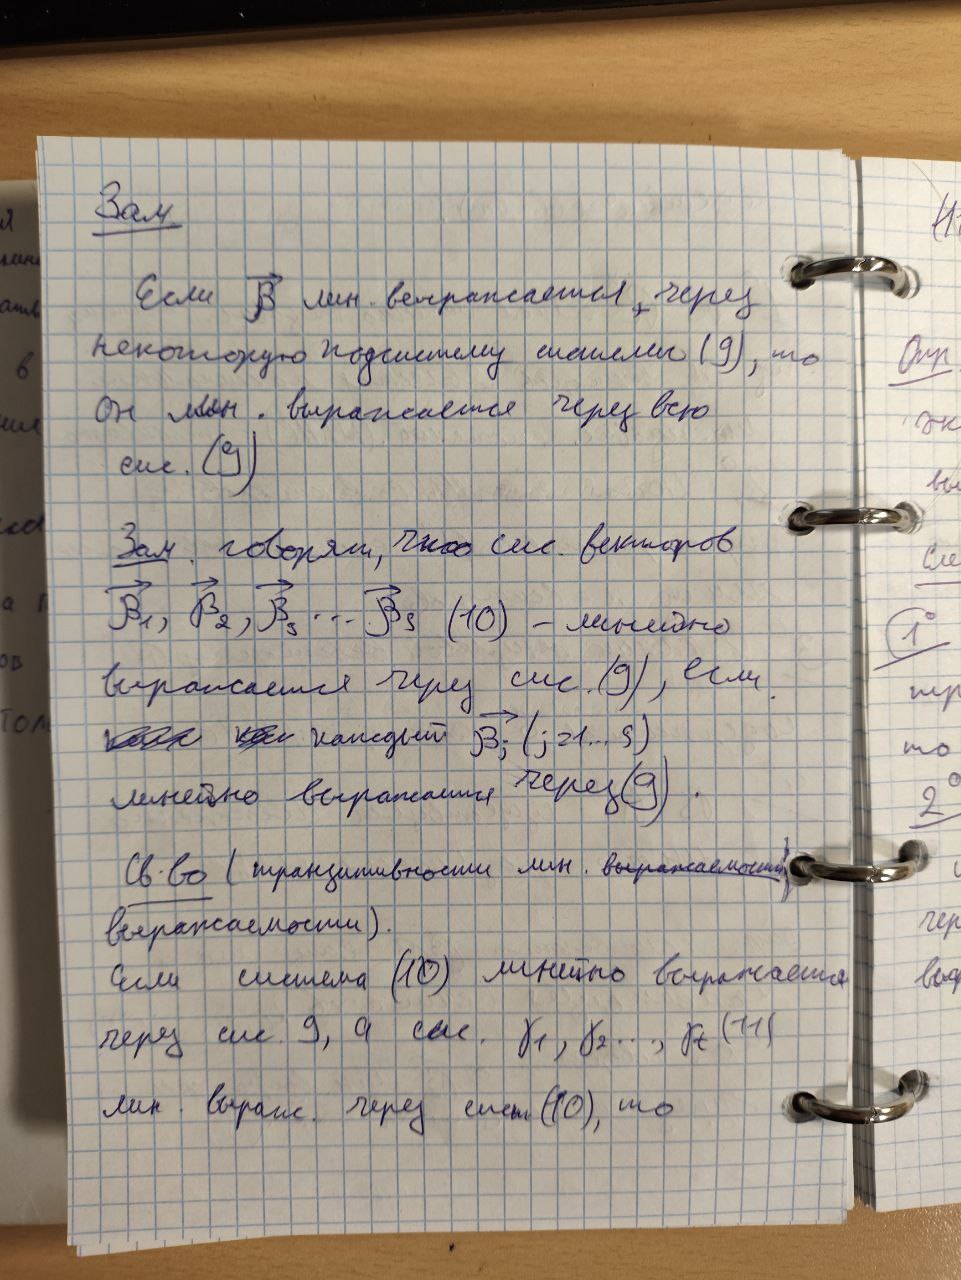 Зам
Если β⃗ лин. выражается, через
некоторую подсистему системы (9), то
он лин. выражается через всю
сис. (9)
Зам. говорят, что сис. векторов
β⃗₁, β⃗₂, β⃗₃ ... β⃗s (10) – линейно
выражается через сис. (9), если
каждый β⃗j (j=1...s)
линейно выражается через (9).
Св-во (транзитивности лин. выражаемости)
выражаемости).
Если система (10) линейно выражается
через сис. 9, а сис. γ₁, γ₂..., γt (11)
лин. выраж. через сист (10), то
Опр
1°
2°